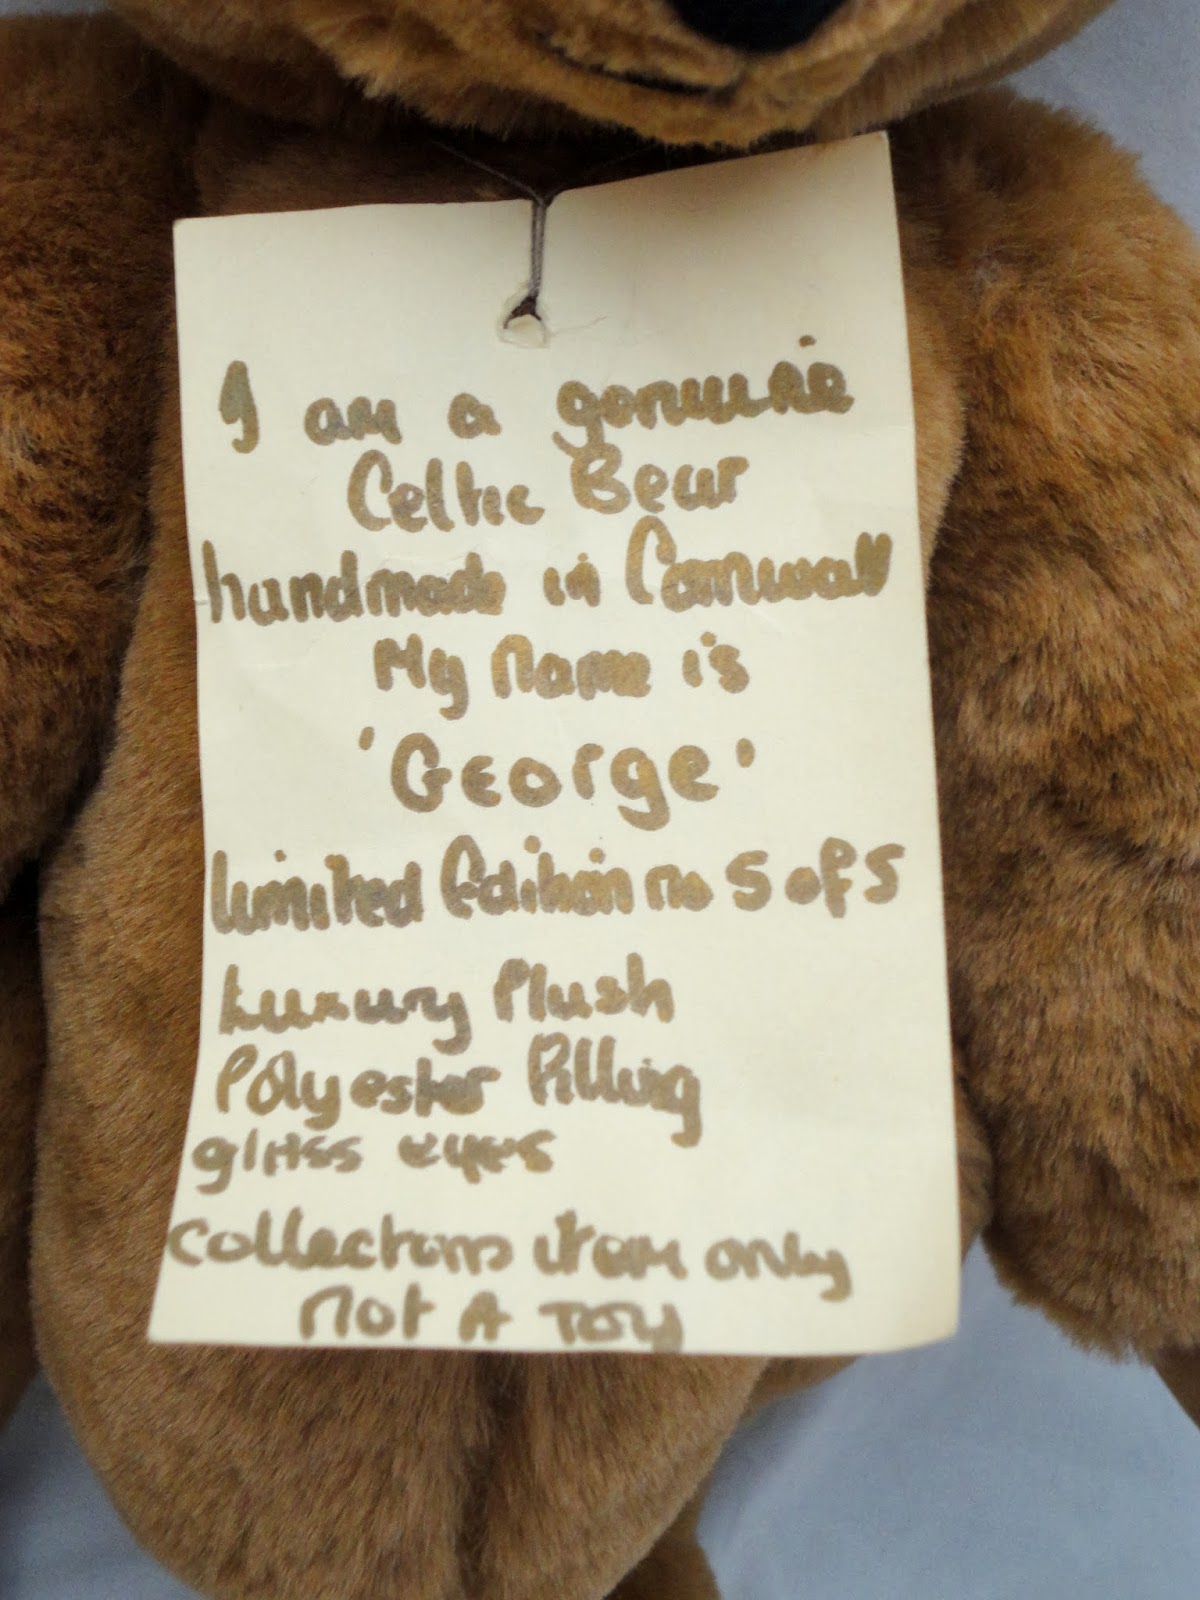 I am a genuine
Celtic Bear
handmade in Cornwall
My name is
'George'
Limited Edition no 5 of 5
Luxury Plush
Polyester Filling
glass eyes
Collectors item only
not A Toy